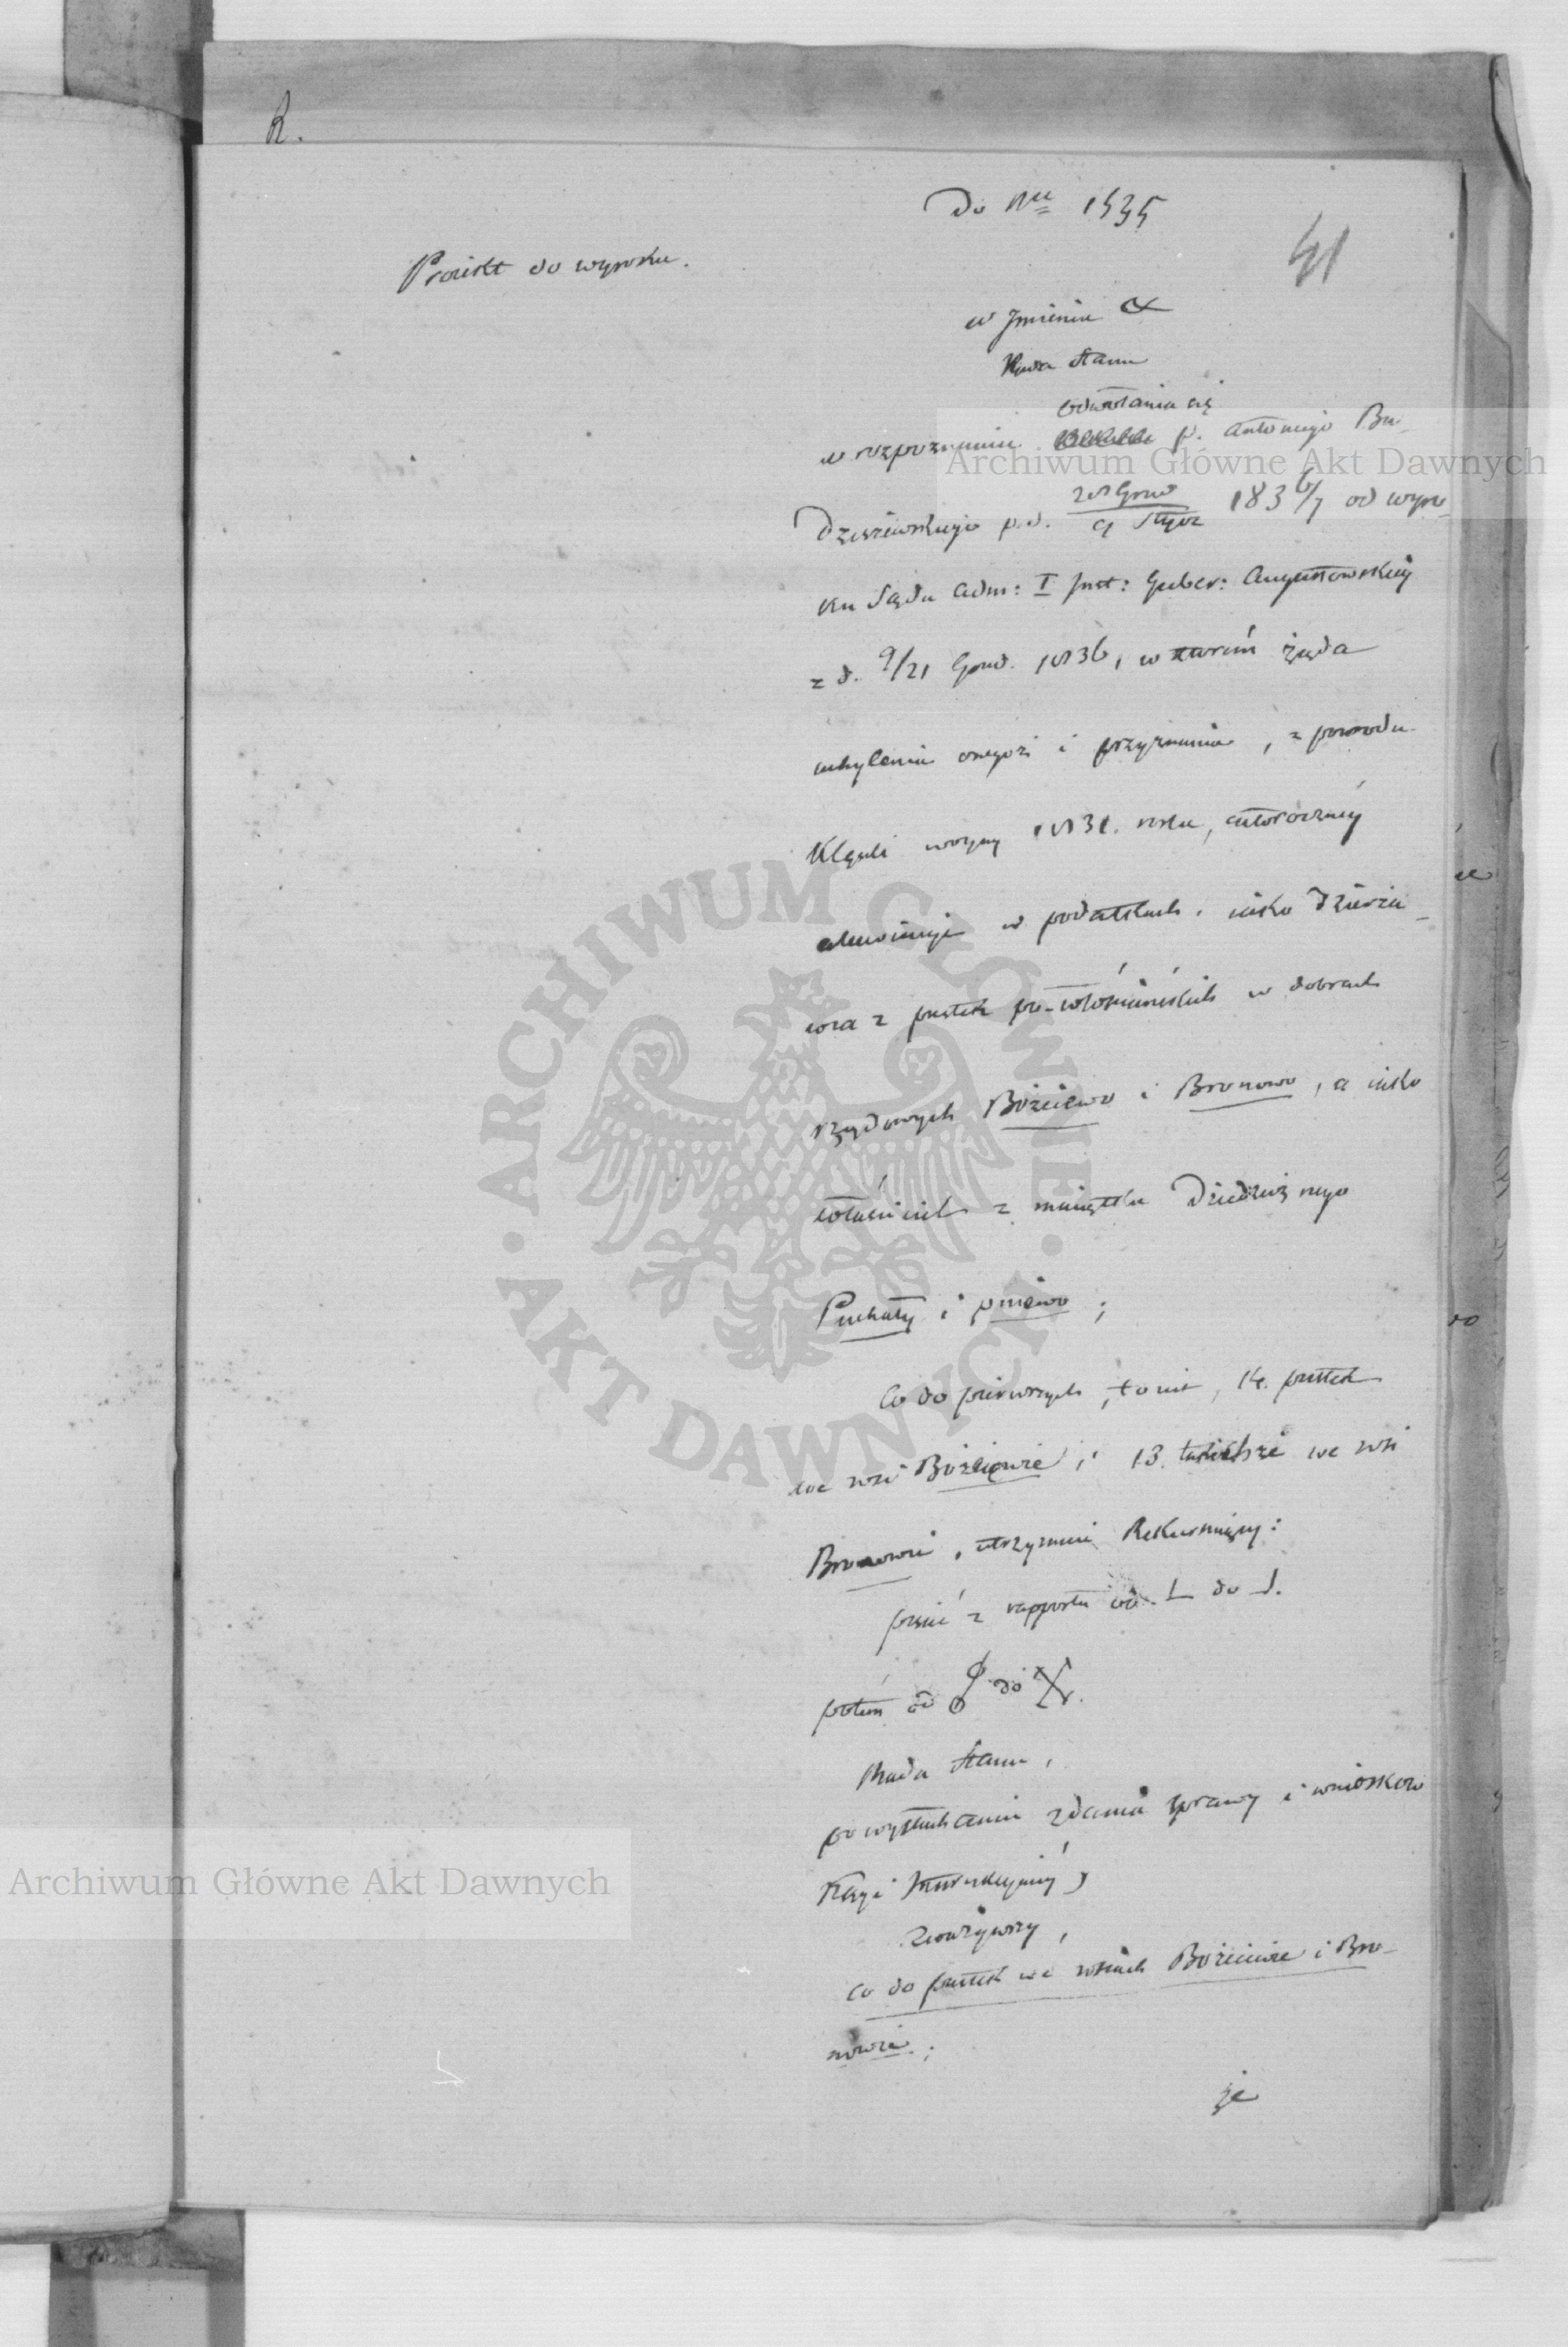 R.
Do Nru 1535
41
Proiekt do wyroku.
w Jmieniu &
Rada Stanu
odwołania się
w rozpoznaniu p. Antoniego Bu-
dziszewskiego p.d. 28 Grud / 9 Stycz 1836/7 od wyro-
ku Sądu Adm: I Inst: Guber: Augustowskiey
z d. 9/21 Grud. 1836, w którém żąda
uchylenia onegoż i przyznania, z powodu
Klęski woyny 1831. roku, całoroczney
w podatkach, iako dzierża-
wca z pustek po-włościańskich w dobrach
rządowych Bożeiewo i Bronowo, a iako
właściciel z maiątku dziedzicznego
Puchały i Pniewo;
Co do pierwszych, to iest, 14. pustek
we wsi Bożeiewie, i 13. takichże we wsi
Bronowie, utrzymuie Rekuruiący:
pisać z rapportu od L do J.
potém od do X.
Rada Stanu,
po wysłuchaniu zdania sprawy i wniosków
Kssyi Instrukcyiney,
Zważywszy,
Co do pustek we wsiach Bożeiewie i Bro-
nowie;
że
Archiwum Główne Akt Dawnych
ARCHIWUM GŁÓWNE
AKT DAWNYCH
Archiwum Główne Akt Dawnych